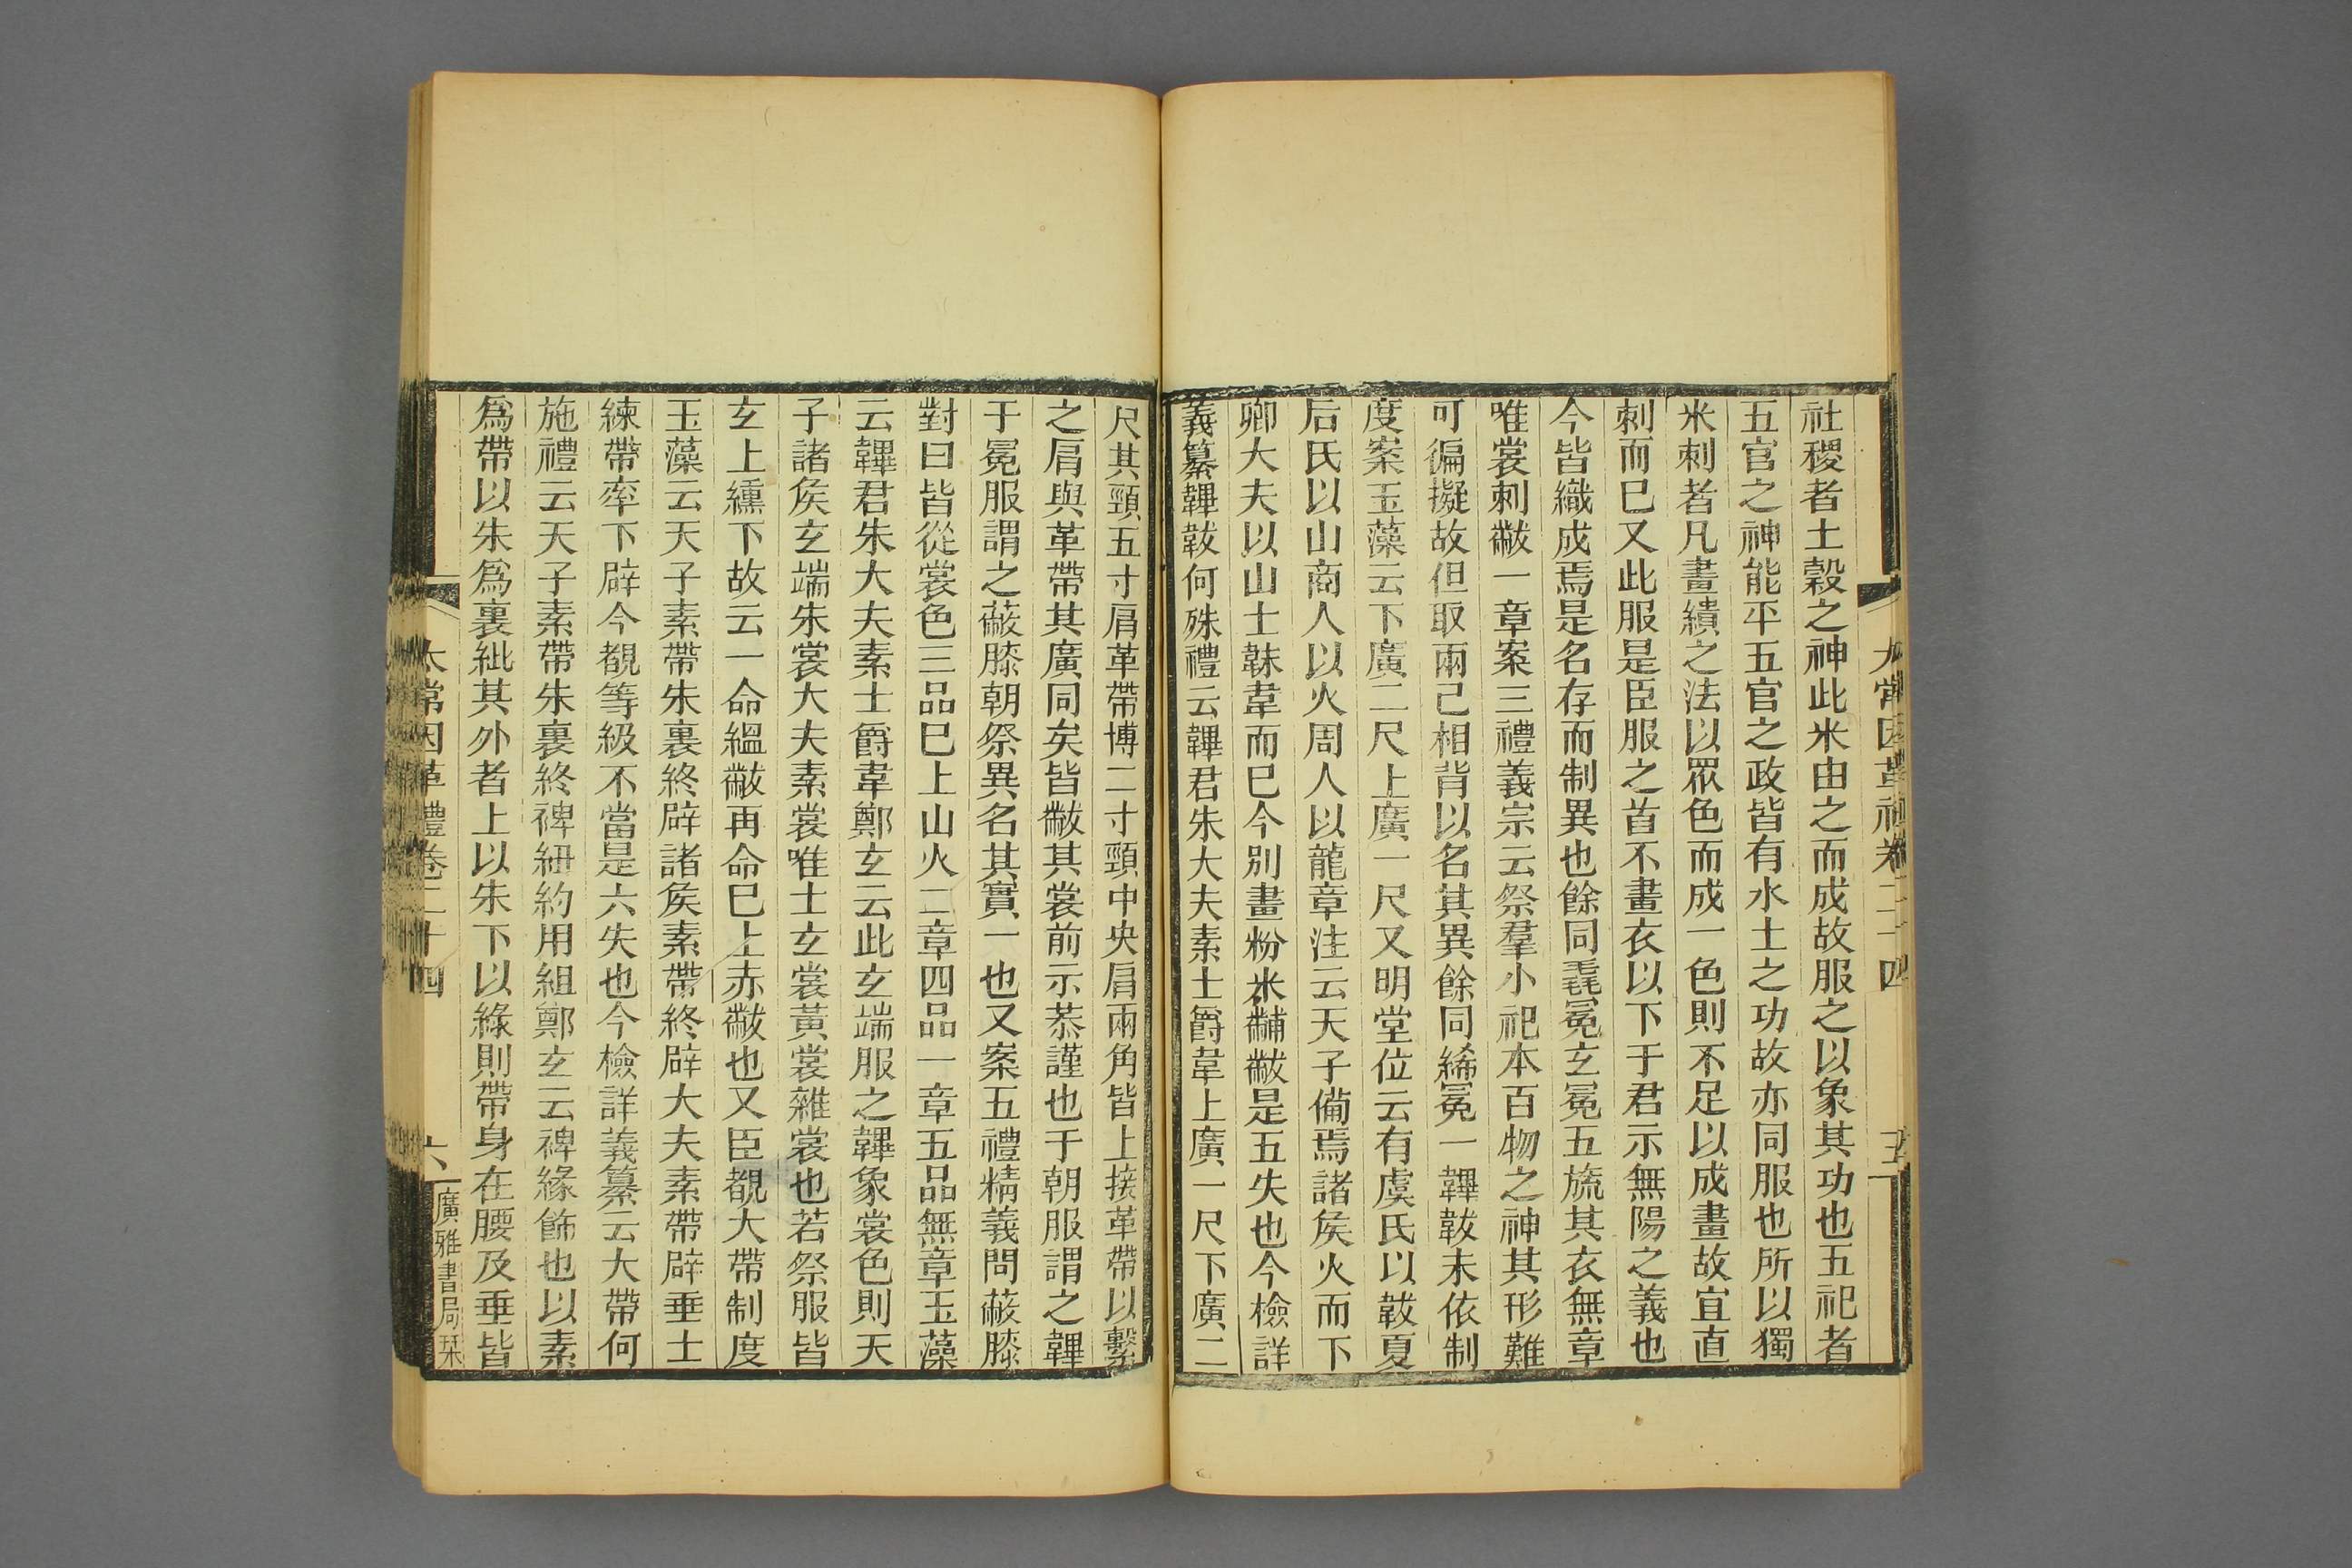 社稷者土穀之神此米由之而成故服之以象其功也五祀者
五官之神能平五官之政皆有水土之功故亦同服也所以獨
米刺者凡畫繢之法以眾色而成一色則不足以成畫故宜直
刺而巳又此服是臣服之首不畫衣以下于君示無陽之義也
今皆織成焉是名存而制異也餘同毳冕玄冕五旒其衣無章
唯裳刺黻一章案三禮義宗云祭羣小祀本百物之神其形難
可徧擬故但取兩己相背以名其異餘同絺冕一韠韍未依制
度案玉藻云下廣二尺上廣一尺又明堂位云有虞氏以韍夏
后氏以山商人以火周人以龍章注云天子備焉諸矦火而下
卿大夫以山士韎韋而巳今別畫粉米黼黻是五失也今檢詳
義纂韠韍何殊禮云韠君朱大夫素士爵韋上廣一尺下廣二
太常因革禮卷二十四
五
尺其頸五寸肩革帶博二寸頸中央肩兩角皆上接革帶以繫
之肩與革帶其廣同矣皆黻其裳前示恭謹也于朝服謂之韠
于冕服謂之蔽膝朝祭異名其實一也又案五禮精義問蔽膝
對曰皆從裳色三品巳上山火二章四品一章五品無章玉藻
云韠君朱大夫素士爵韋鄭玄云此玄端服之韠象裳色則天
子諸矦玄端朱裳大夫素裳唯士玄裳黃裳雜裳也若祭服皆
玄上纁下故云一命縕黻再命巳上赤黻也又臣覩大帶制度
玉藻云天子素帶朱裏終辟諸矦素帶終辟大夫素帶辟垂士
練帶率下辟今覩等級不當是六失也今檢詳義纂云大帶何
施禮云天子素帶朱裏終裨紐約用組鄭玄云裨緣飾也以素
爲帶以朱爲裏紕其外者上以朱下以綠則帶身在腰及垂皆
太常因革禮卷二十四
六
廣雅書局栞